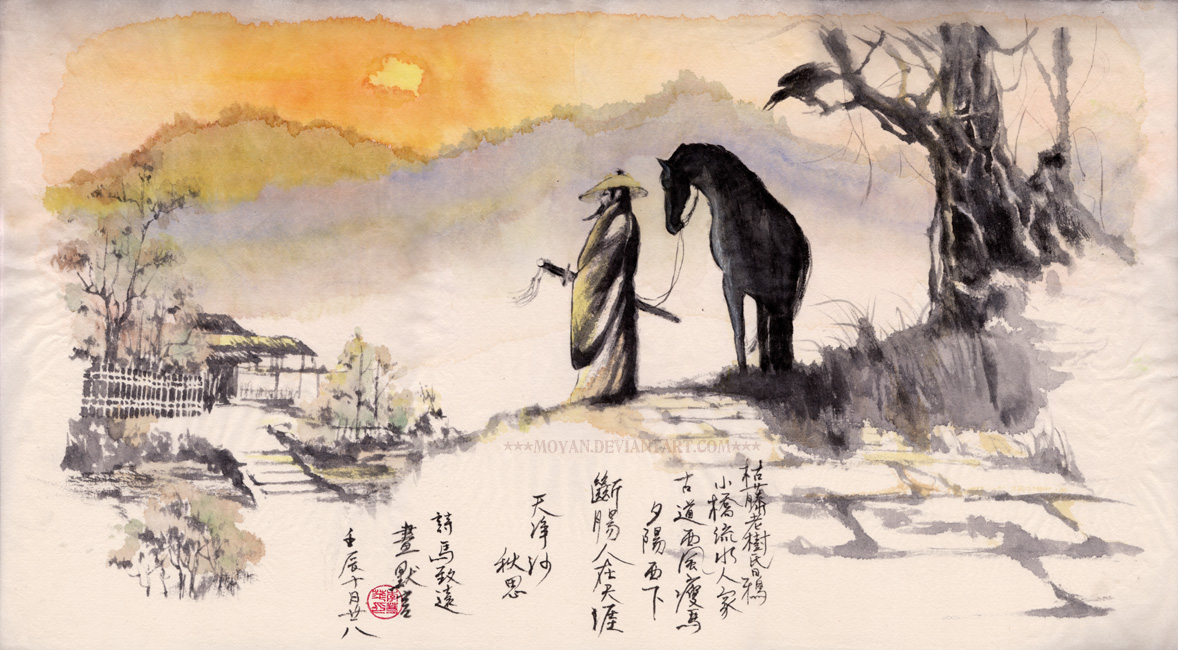 ***MOYAN.DEVIANTART.COM***
枯藤老樹昏鴉
小橋流水人家
古道西風瘦馬
夕陽西下
斷腸人在天涯
天淨沙
秋思
詩馬致遠
畫默言
壬辰十月廿八